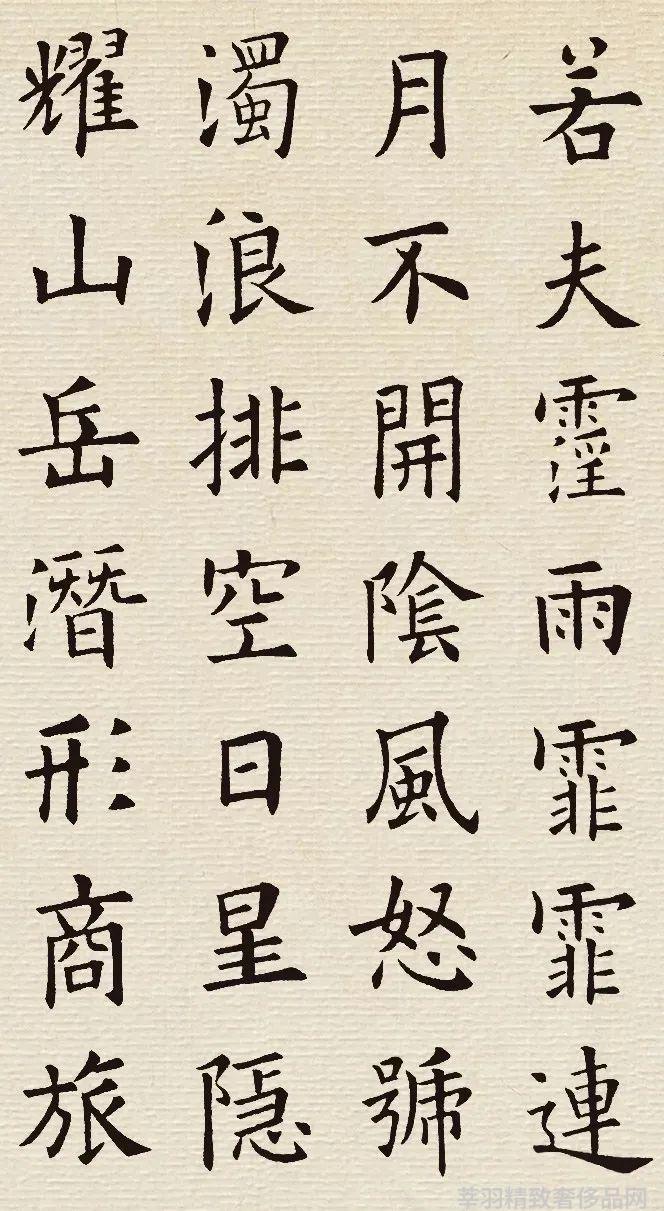 若夫霪雨霏霏連
月不開陰風怒號
濁浪排空日星隱
耀山岳潛形商旅
莘羽精致奢侈品网